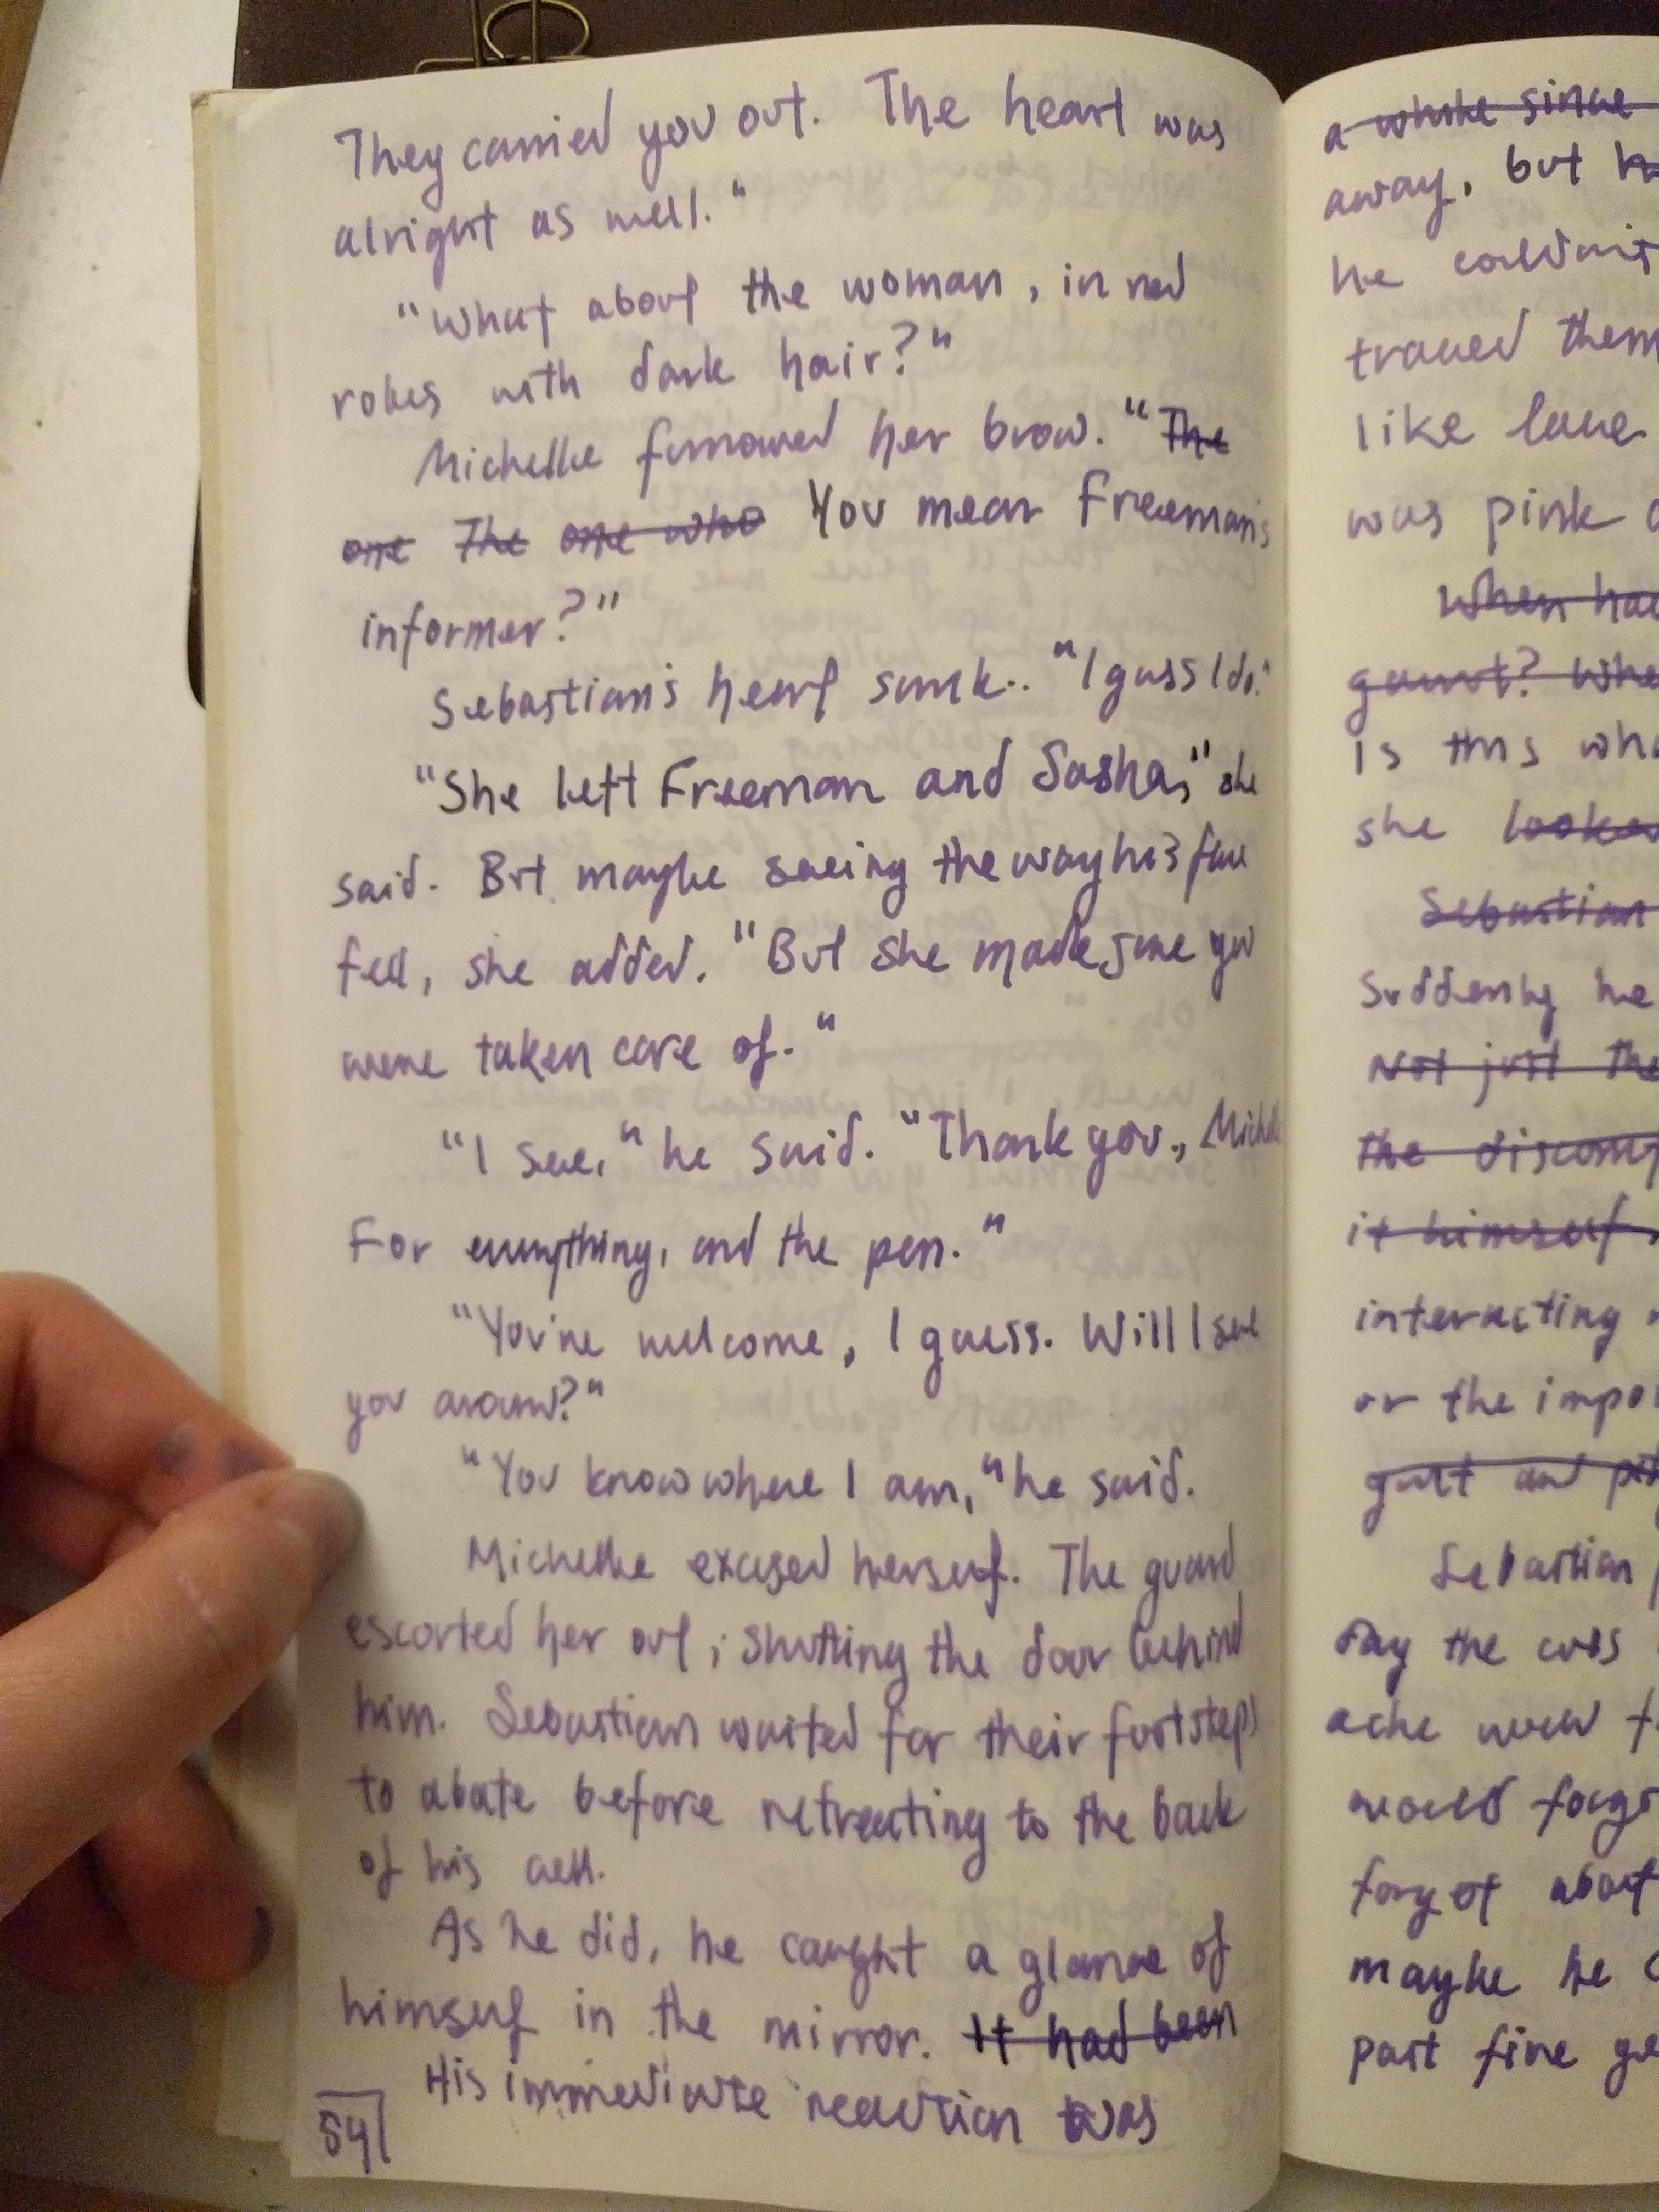 They carried you out. The heart was
alright as well."
"What about the woman, in red
robes with dark hair?"
Michelle furrowed her brow. "The
one The one who You mean Freeman's
informer?"
Sebastian's heart sunk.. "I guess I do."
"She left Freeman and Sasha," she
said. But maybe seeing the way his face
fell, she added. "But she made sure you
were taken care of."
"I see," he said. "Thank you, Michelle
For everything, and the pen."
"You're welcome, I guess. Will I see
you around?"
"You know where I am," he said.
Michelle excused herself. The guard
escorted her out, shutting the door behind
him. Sebastian waited for their footsteps
to abate before retreating to the back
of his cell.
As he did, he caught a glance of
himself in the mirror. It had been
His immediate reaction was
54
a whole since
away, but
he couldn't
traced them
like
was pink
When
gaunt?
Is this
she
Sebastian
Suddenly he
Not just the
the
it himself
interacting
or the
guilt
Sebastian
the
ache
would
forgot about
maybe he
past five